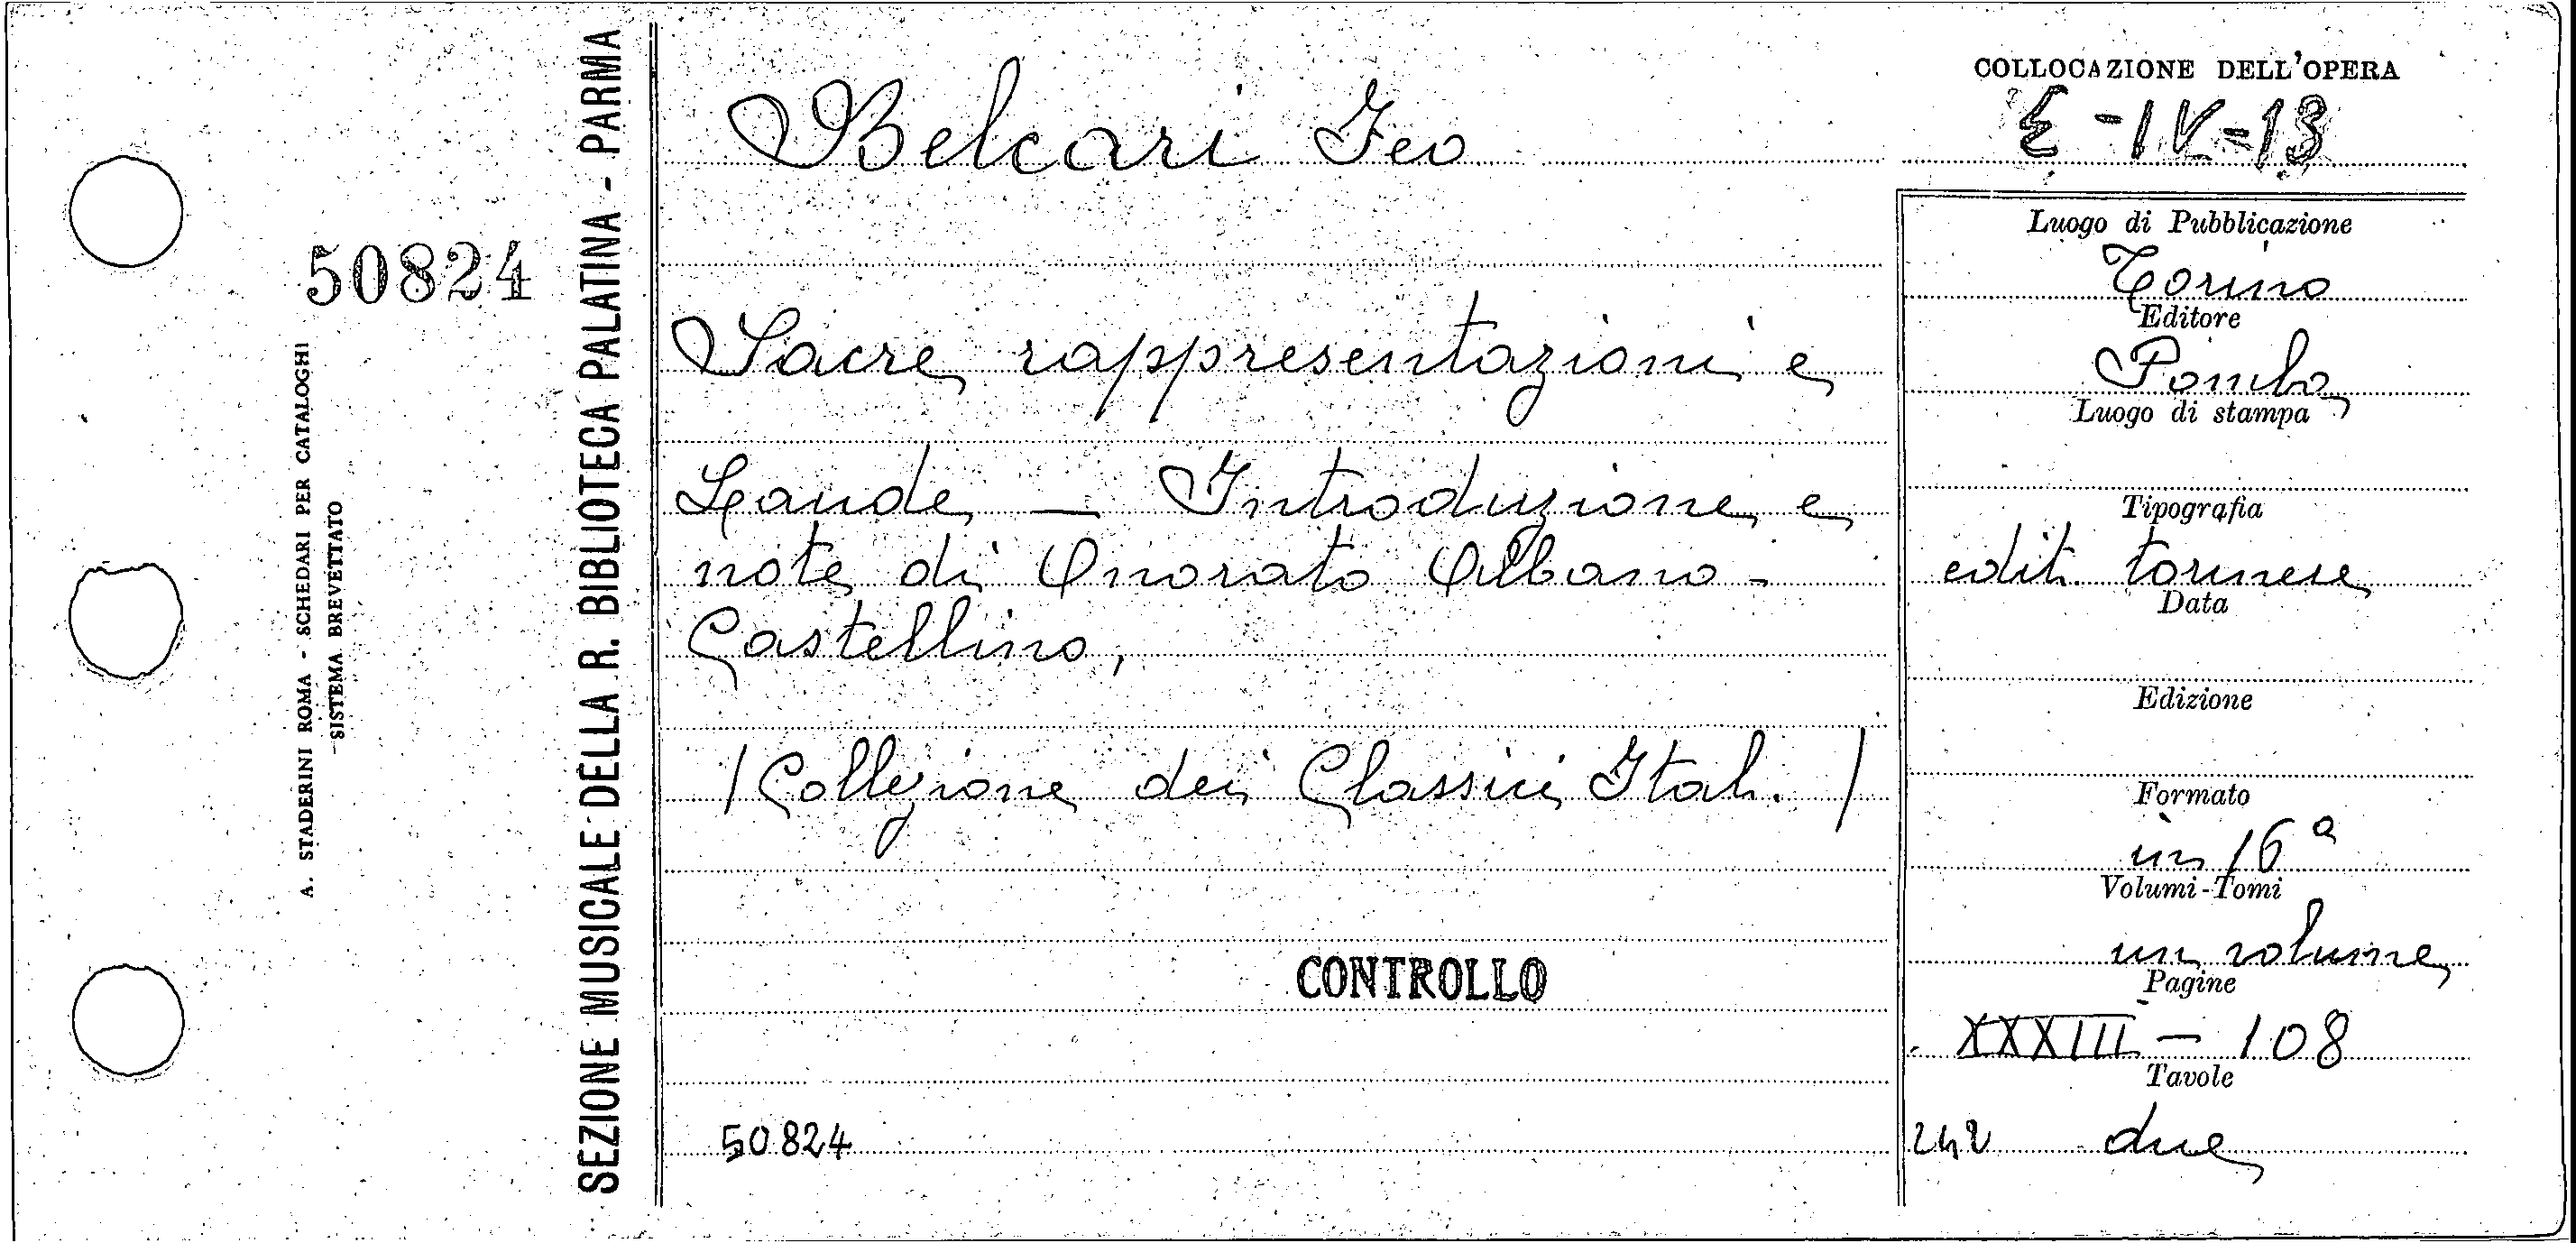 COLLOCAZIONE DELL'OPERA
Belcari Feo
E-IV-13
50824
A. STADERINI ROMA - SCHEDARI PER CATALOGHI
SISTEMA BREVETTATO
SEZIONE MUSICALE DELLA R. BIBLIOTECA PALATINA - PARMA
Sacre rappresentazioni e
Laude — Introduzione e
note di Onorato Albano -
Castellino,
/ Collezione dei Classici Ital. /
CONTROLLO
50824
Luogo di Pubblicazione
Torino
Editore
Pomba
Luogo di stampa
Tipografia
edit. torinese
Data
Edizione
Formato
in 16º
Volumi-Tomi
un volume
Pagine
XXXIII — 108
Tavole
due